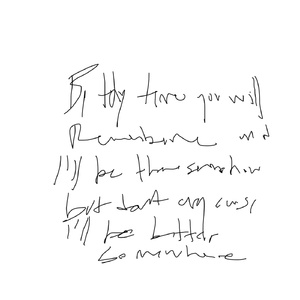 By thy time you will
Remember me and
I'll be there somehow
but don't
I'll be better
Somewhere